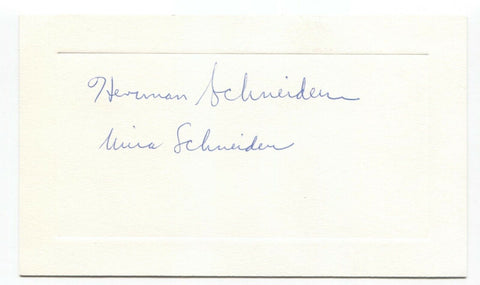 Herman Schneider
Nina Schneider